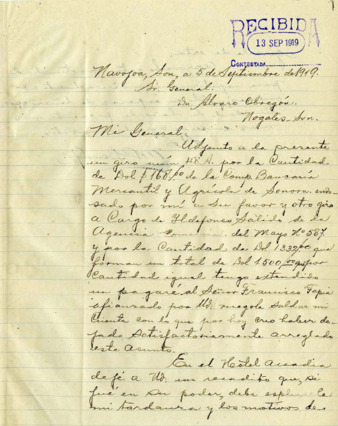 RECIBIDA
13 SEP 1919
CONTESTADA
Navojoa, Son, a 5 de Septiembre de 1919.
Sr. General.
Dn. Alvaro Obregón.
Nogales - Son.
Mi General:
Adjunto a la presente
un giro núm por la Cantidad
de Dol $168.00 de la Comp. Bancaria
Mercantil y Agricola de Sonora
sado por mi en su favor y otro giro
a Cargo de Ildefonso Salido de la
Agencia del Mayo No. 587
y por la Cantidad de Dol que
forman un total de Dol $1500.00 por
Cantidad igual tengo extendido
un pagaré al Señor Francisco Tapia
afianzado por Ud. ruegole saldar mi
Cuenta con lo que por hoy creo haber de-
jado Satisfactoriamente arreglado
este Asunto.
En el Hotel Arcadia
dejé a Ud. un recadito que, si
fué en su poder, debe
mi tardanza y los motivos de